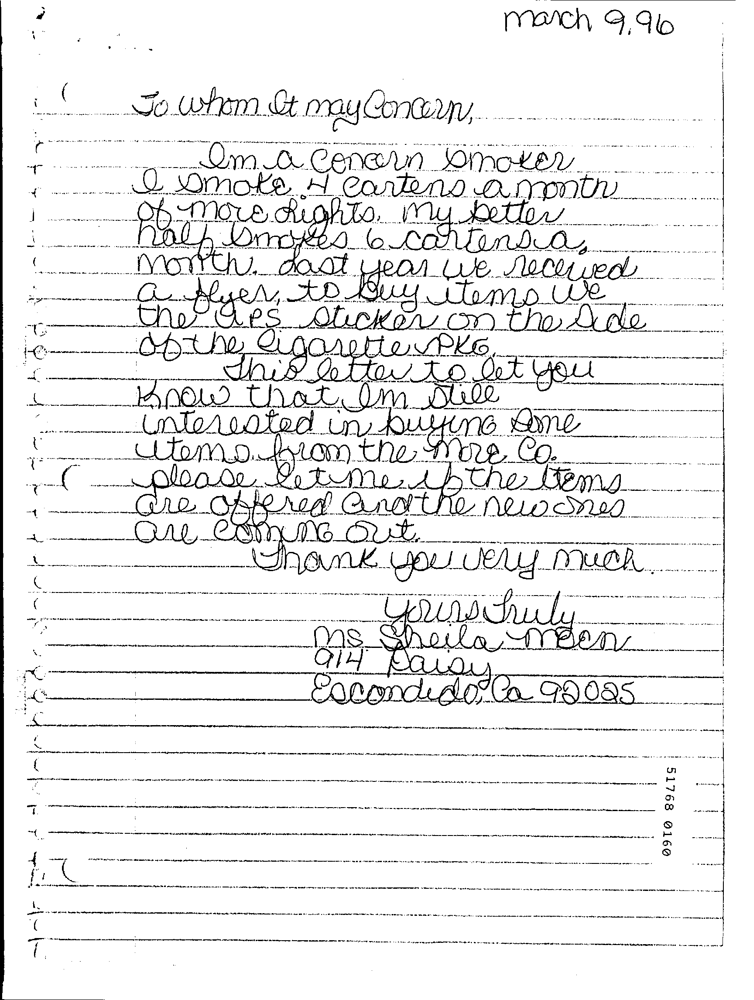 march 9, 96
To whom It may Concern,
Im a Concern Smoker
I smoke 4 cartens a month
of more Lights. my better
half Smokes 6 cartens a,
month. Last year we received
a flyer, to buy items we
the UPS sticker on the Side
of the Cigarette PKG
This letter to let you
Know that Im Still
interested in buying Some
items from the More Co.
please let me if the Items
are offered and the new ones
are coming out.
Thank you very much.
yours Truly
Ms. Sheila
914 Daisy
Escondido, Ca 92025
51768 0160